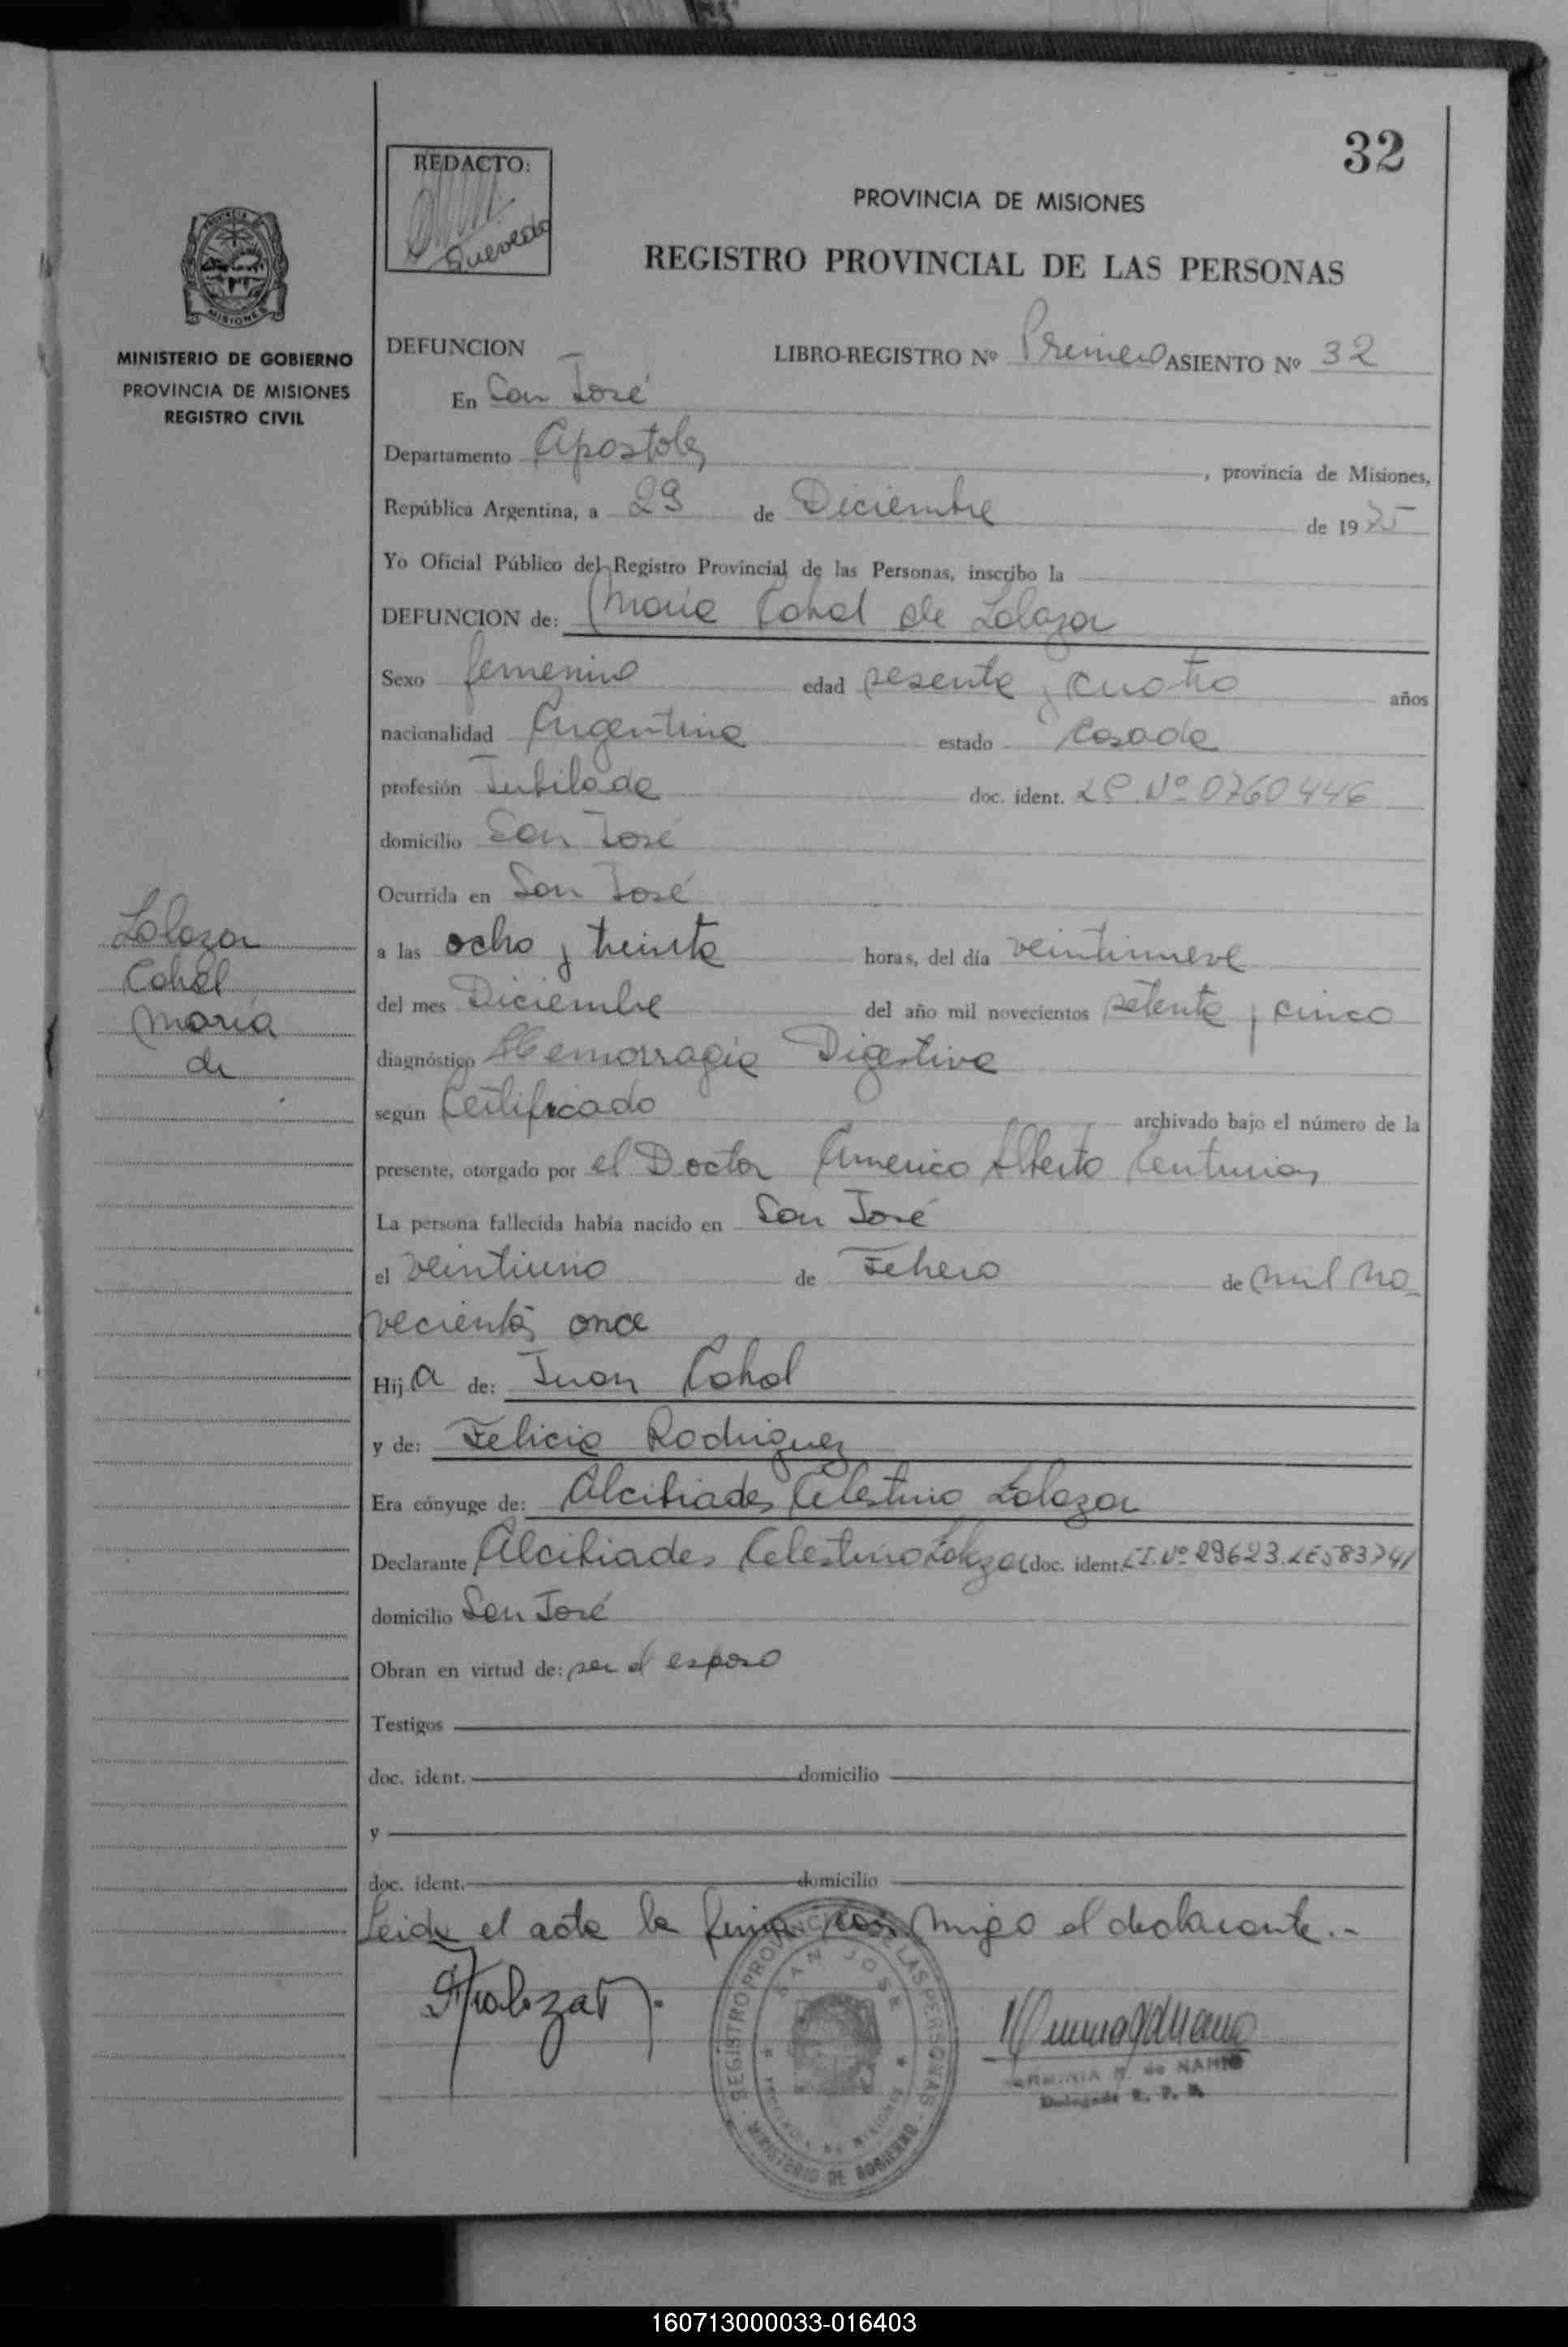 32
REDACTO:
Quevedo
PROVINCIA DE MISIONES
REGISTRO PROVINCIAL DE LAS PERSONAS
MISIONES
MINISTERIO DE GOBIERNO
PROVINCIA DE MISIONES
REGISTRO CIVIL
DEFUNCION LIBRO-REGISTRO Nº Primero ASIENTO Nº 32
En San José
Departamento Apostoles, provincia de Misiones,
República Argentina, a 29 de Diciembre de 1975
Yo Oficial Público del Registro Provincial de las Personas, inscribo la
DEFUNCION de: Maria Cohol de Zalazar
Sexo femenino edad sesenta y cuatro años
nacionalidad Argentina estado Casada
profesión Jubilada doc. ident. LC. Nº 0760446
domicilio San José
Ocurrida en San José
a las ocho y treinta horas, del día veintinueve
del mes Diciembre del año mil novecientos setenta y cinco
diagnóstico Hemorragia Digestiva
según Certificado archivado bajo el número de la
presente, otorgado por el Doctor Americo Alberto Centurion
La persona fallecida había nacido en San José
el veintiuno de Febrero de mil no
vecientos once
Hija de: Juan Cohol
y de: Felicia Rodriguez
Era cónyuge de: Alcibiades Celestino Zalazar
Declarante Alcibiades Celestino Zalazar doc. ident. CI. Nº 29623. LE 583741
domicilio San José
Obran en virtud de: ser el esposo
Testigos
doc. ident. domicilio
y
doc. ident. domicilio
Leida el acta la firma con migo el declarante.-
Zalazar
Cohol
María
de
REGISTRO PROVINCIAL DE LAS PERSONAS
SAN JOSE
MINISTERIO DE GOBIERNO
Delegada R. P. P.
160713000033-016403